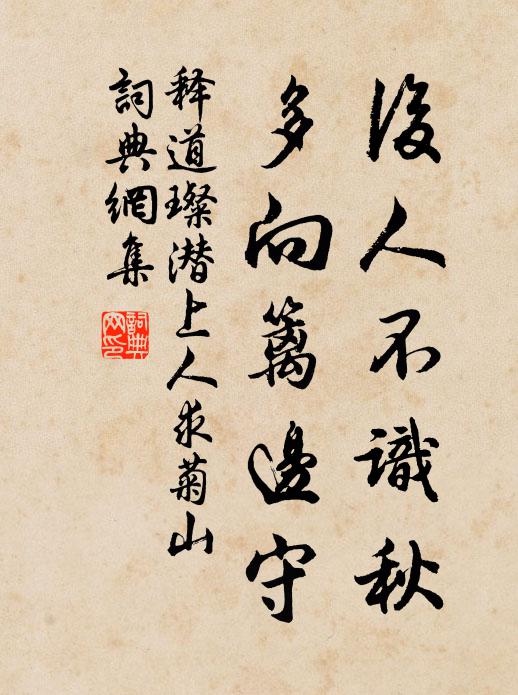 後人不識秋
多向籬邊守
释道璨潜上人求菊山
詞典網集
詞典網印